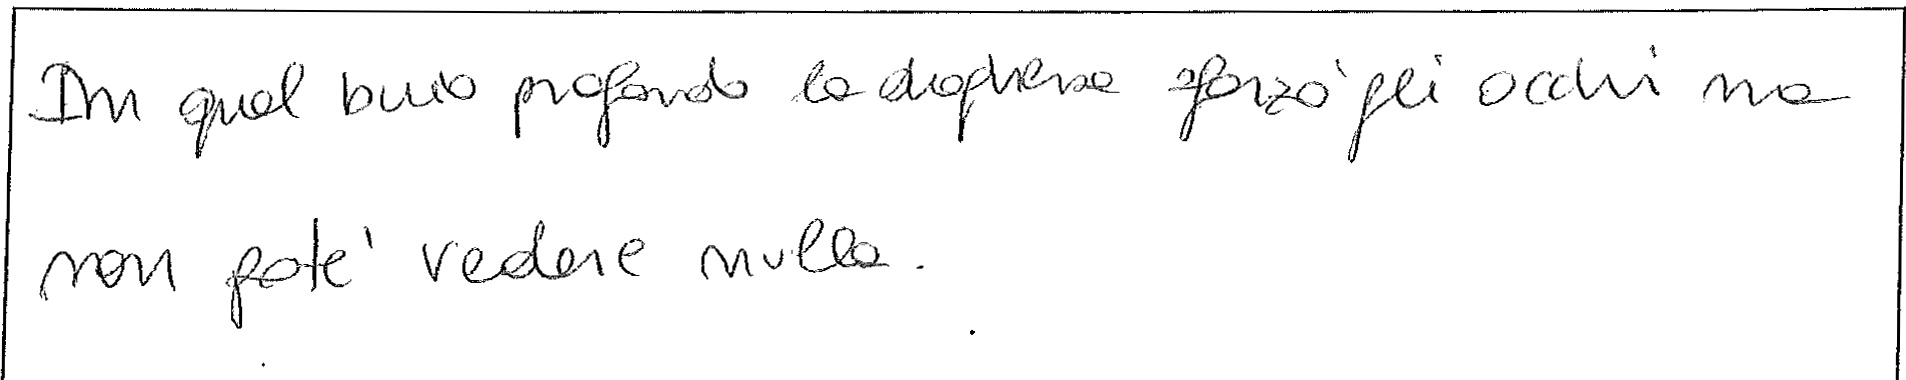 In quel buio profondo la sforzo' gli occhi ma
non pote' vedere nulla.